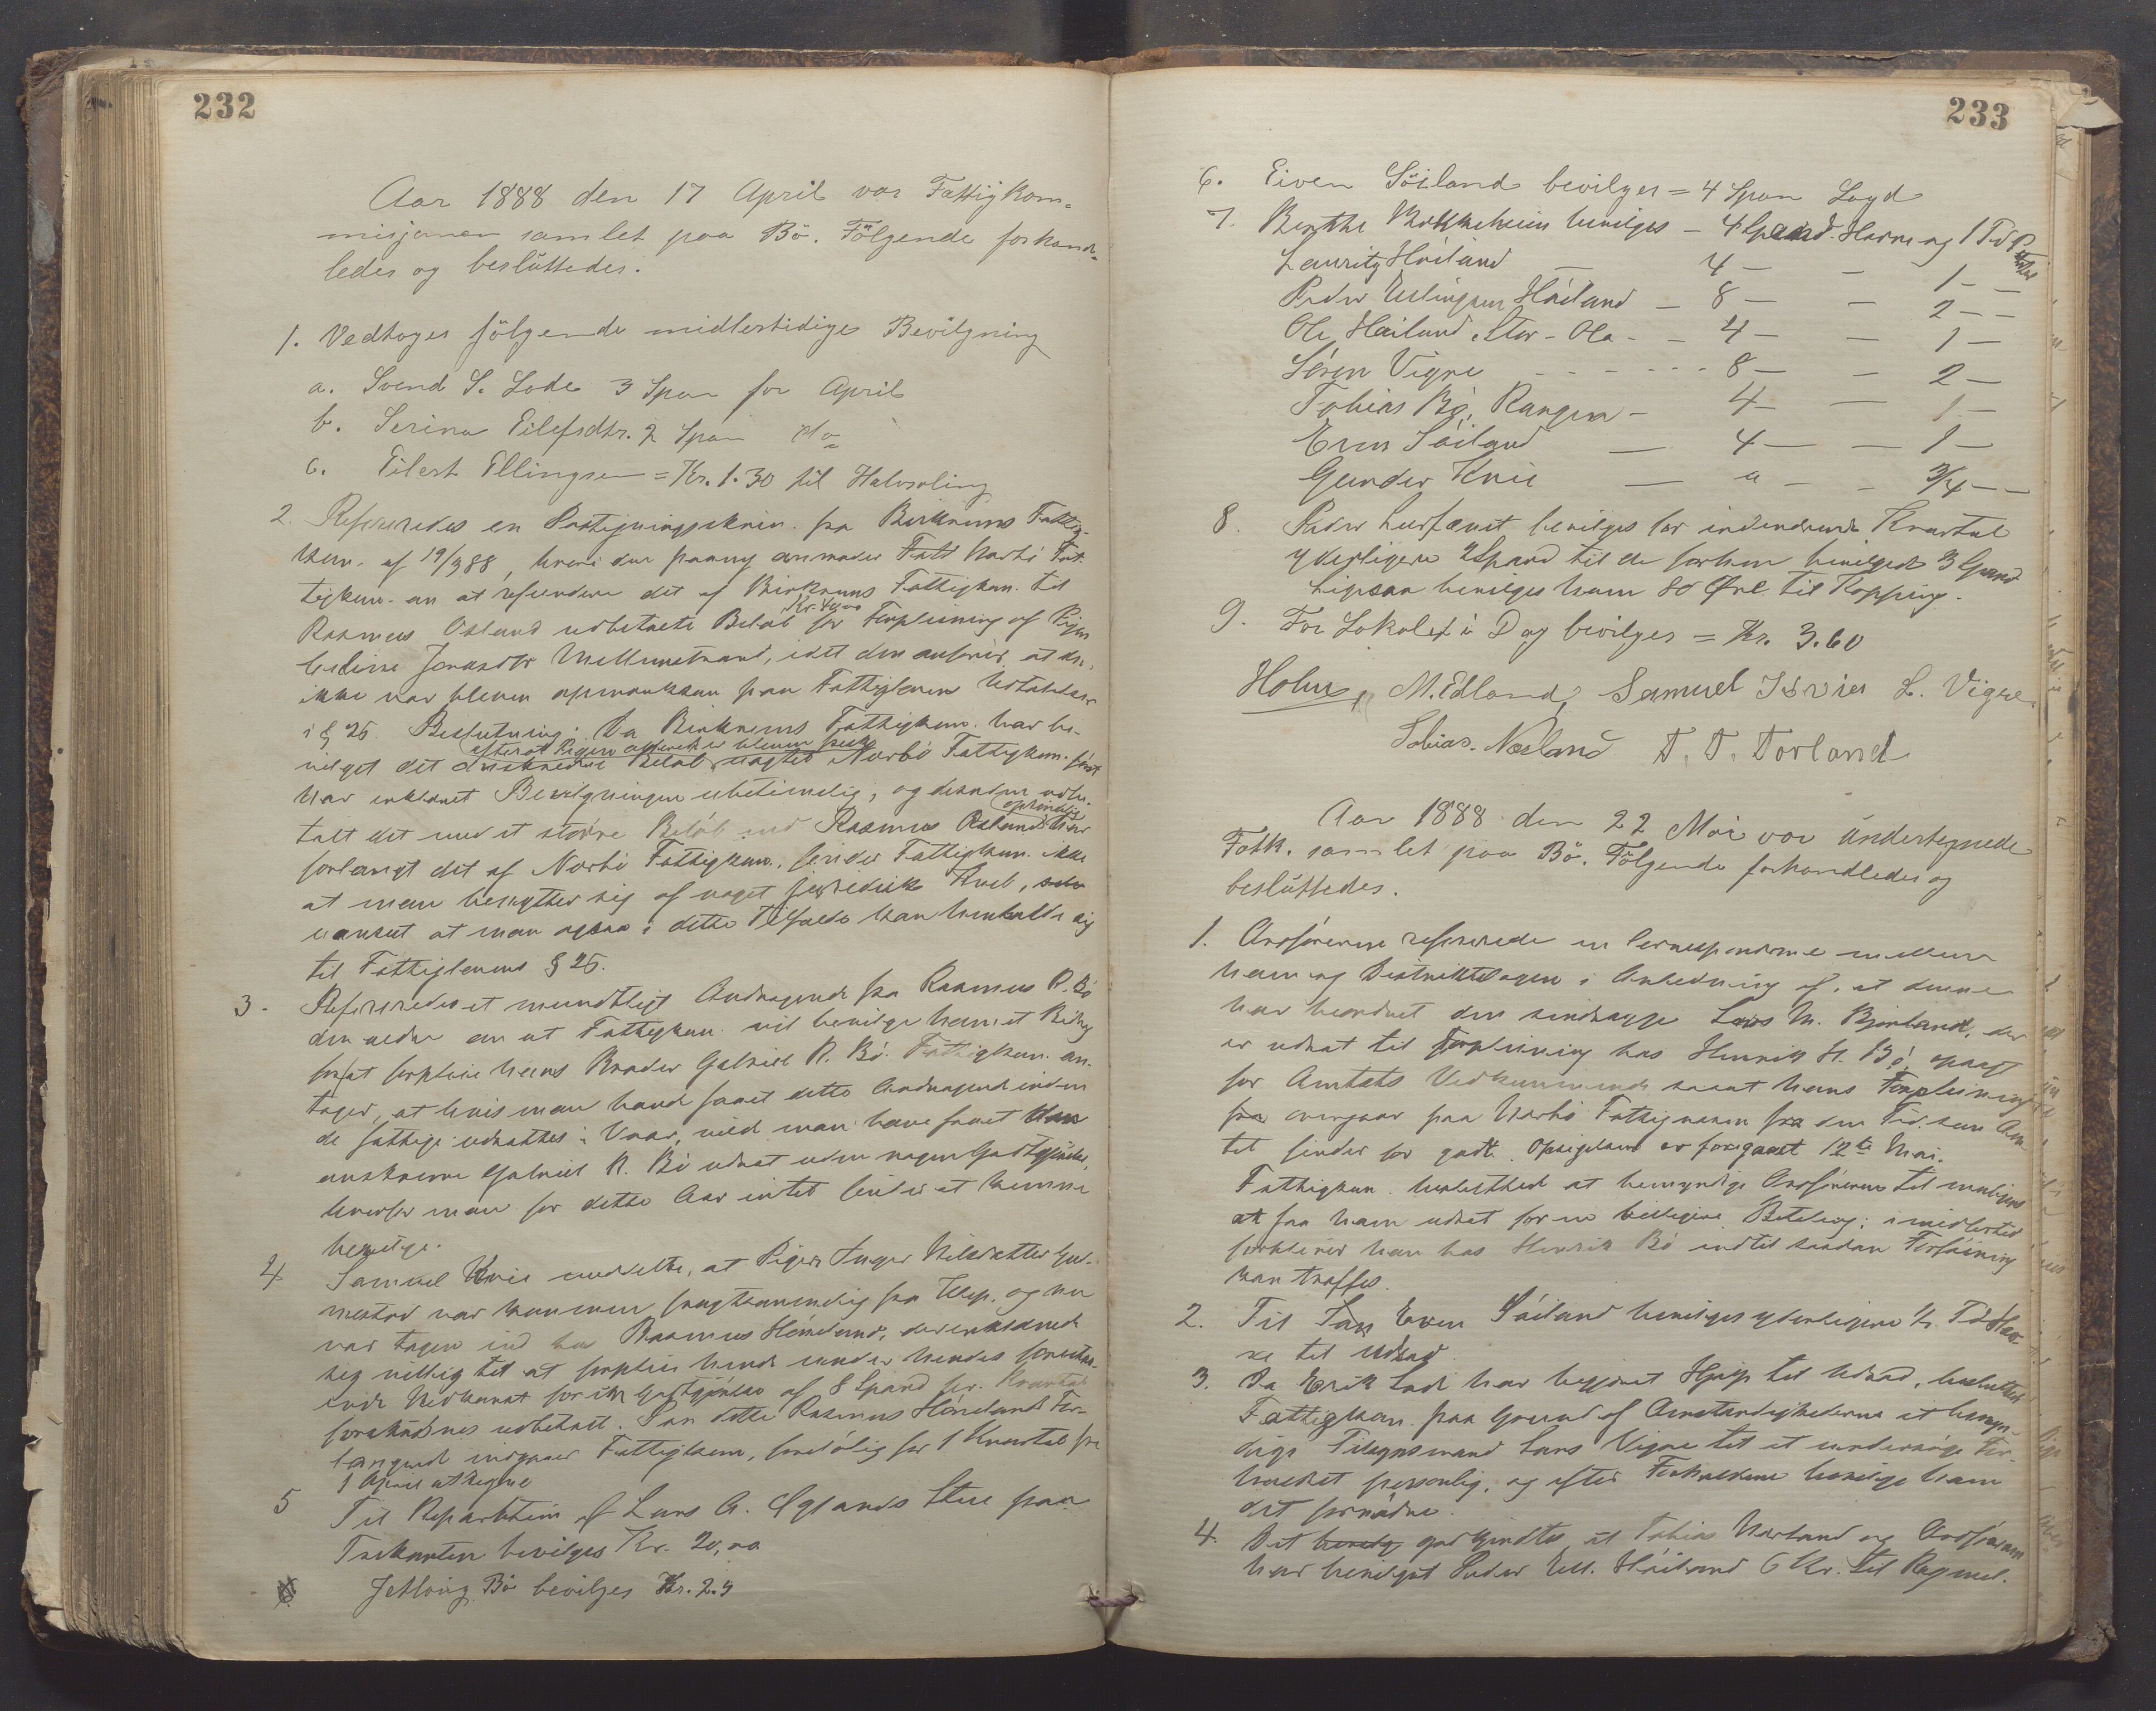 232
Aar 1888 den 17 April var Fattigkom-
misjonen samlet paa Bö. Fölgende forhand-
ledes og beslüttedes.
1. Vedtoges fölgende midlertidige Bevilgning
a. Svend S. Lode 3 Span for April
b. Serina Eilefsdtr. 2 Span do
c. Eilert Ellingsen = Kr. 1.30 til Halvsoling
2. Refereredes en fra Birkrems Fattig-
kom. af 19/3 88, hvori den paany anmoder Fatt Narbö Fat-
tigkom. om at refundere det af Birkrems Fattigkom. til
Rasmus Osland udbetalte Beløb Kr. 40.00 for Forpleining af Pigen
Jonasdtr Mellomstrand, idet den anfører, at den
ikke var bleven opmærksom paa Fattiglovens Udtalelser
i § 25. Beslutning: Da Birkrems Fattigkom. har be-
vilget det Beløb efterat Pigen var bleven frisk Narbö Fattigkom. først
har erklæret Bevilgningen ubetimelig, og desuden udbe-
talt det med et større Beløb end Rasmus Osland oprindelig har
forlangt det af Narbö Fattigkom., finder Fattigkom. ikke
at man benytter sig af noget juridisk Kneb,
uanset at man ogsaa i dette Tilfælde kan henholde sig
til Fattiglovens § 25.
3. Refereredes et mundtligt Andragende fra Rasmus R. Bö
den ældre om at Fattigkom. vil bevilge ham et Bidrag
for at forpleie hans Broder Gabriel R. Bö. Fattigkom. an-
tager, at hvis man havde faaet dette Andragende inden
de fattige udsattes i Vaar, vilde man have faaet
Gabriel R. Bö udsat uden nogen Godtgjørelse,
hvorfor man for dette Aar intet finder at kunne
bevilge.
4 Samuel Kvie meddelte, at Pigen Inger Nilsdatter Gud-
mestad var kommen frugtsommelig fra Klep, og nu
var tagen ind hos Rasmus Höiland, der erklærede
sig villig til at forpleie hende under hendes
Nedkomst for en Godtgjörelse af 8 Spand pr. Kvartal
forskudsvis udbetalt. Paa dette Rasmus Hölands For-
langende indgaar Fattigkom, foreløbig for 1 Kvartal fra
1 April at regne
5 Til Reparation af Lars A. Oglands Stue paa
bevilges Kr. 20,00
Bö bevilges Kr. 2.
233
6. Eiven Söiland bevilges = 4 Span Bygd
7. Berthe bevilges - 4 Spand Havre og 1 Td Poteter
Lauritz Höiland — 4 — — 1 — —
Peder Erlingsen Höiland — 8 — — 2 — —
Ole Höiland, Stor-Ola - - 4 — — 1 —
Sören Vigre - - - - - - 8 — — 2 —
Tobias Bö, - 4 — — 1 —
Even Söiland — 4 — — 1 —
Gunder Kvie — " — — 3/4 — —
8. Peder bevilges for indeværende Kvartal
yderligere 2 Spand til de forhen bevilgede 3 Spand
Ligesaa bevilges ham 80 Øre til Kopping.
9. For Lokalet i Dag bevilges = Kr. 3.60
Holm, M. Edland, Samuel L. Vigre
Tobias Næsland T. T. Torland
Aar 1888 den 22 Mai var ündertegnede
Fatk. samlet paa Bö. Fölgende forhandledes og
beslüttedes.
1. Ordföreren refererede en Correspondance mellem
ham og Distriktslægen i Anledning af, at denne
har beordret den sindssyge Lars M. Bjorland, der
er udsat til Forpleining hos Henrik H. Bö, opsagt
for Amtets Vedkommende samt hans Forpleining
overgaar paa Narbö Fattigvæsen fra den Tid som Am-
tet finder for godt. Opsigelsen er foregaaet 12te Mai.
Fattigkom. besluttede at bemyndige Ordföreren til muligens
at faa ham udsat for en billigere Betaling; imidlertid
forbliver han hos Henrik Bö indtil saadan Forføining
kan træffes.
2. Til Even Söiland bevilges yderligere 1/2 Td Hav-
re til Udsæd
3. Da Erik Lode har begjært Hjælp til Udsæd, besluttede
Fattigkom. paa Grund af Omstændighederne at bemyn-
dige Tilsynsmand Lars Vigre til at undersöge For-
holdet personlig, og efter Forholdene bevilge ham
det fornødne.
4. Det godkjendtes at Tobias Nærland og Ordføreren
har bevilget Peder Ell. Höiland 6 Kr. til Rugmel.